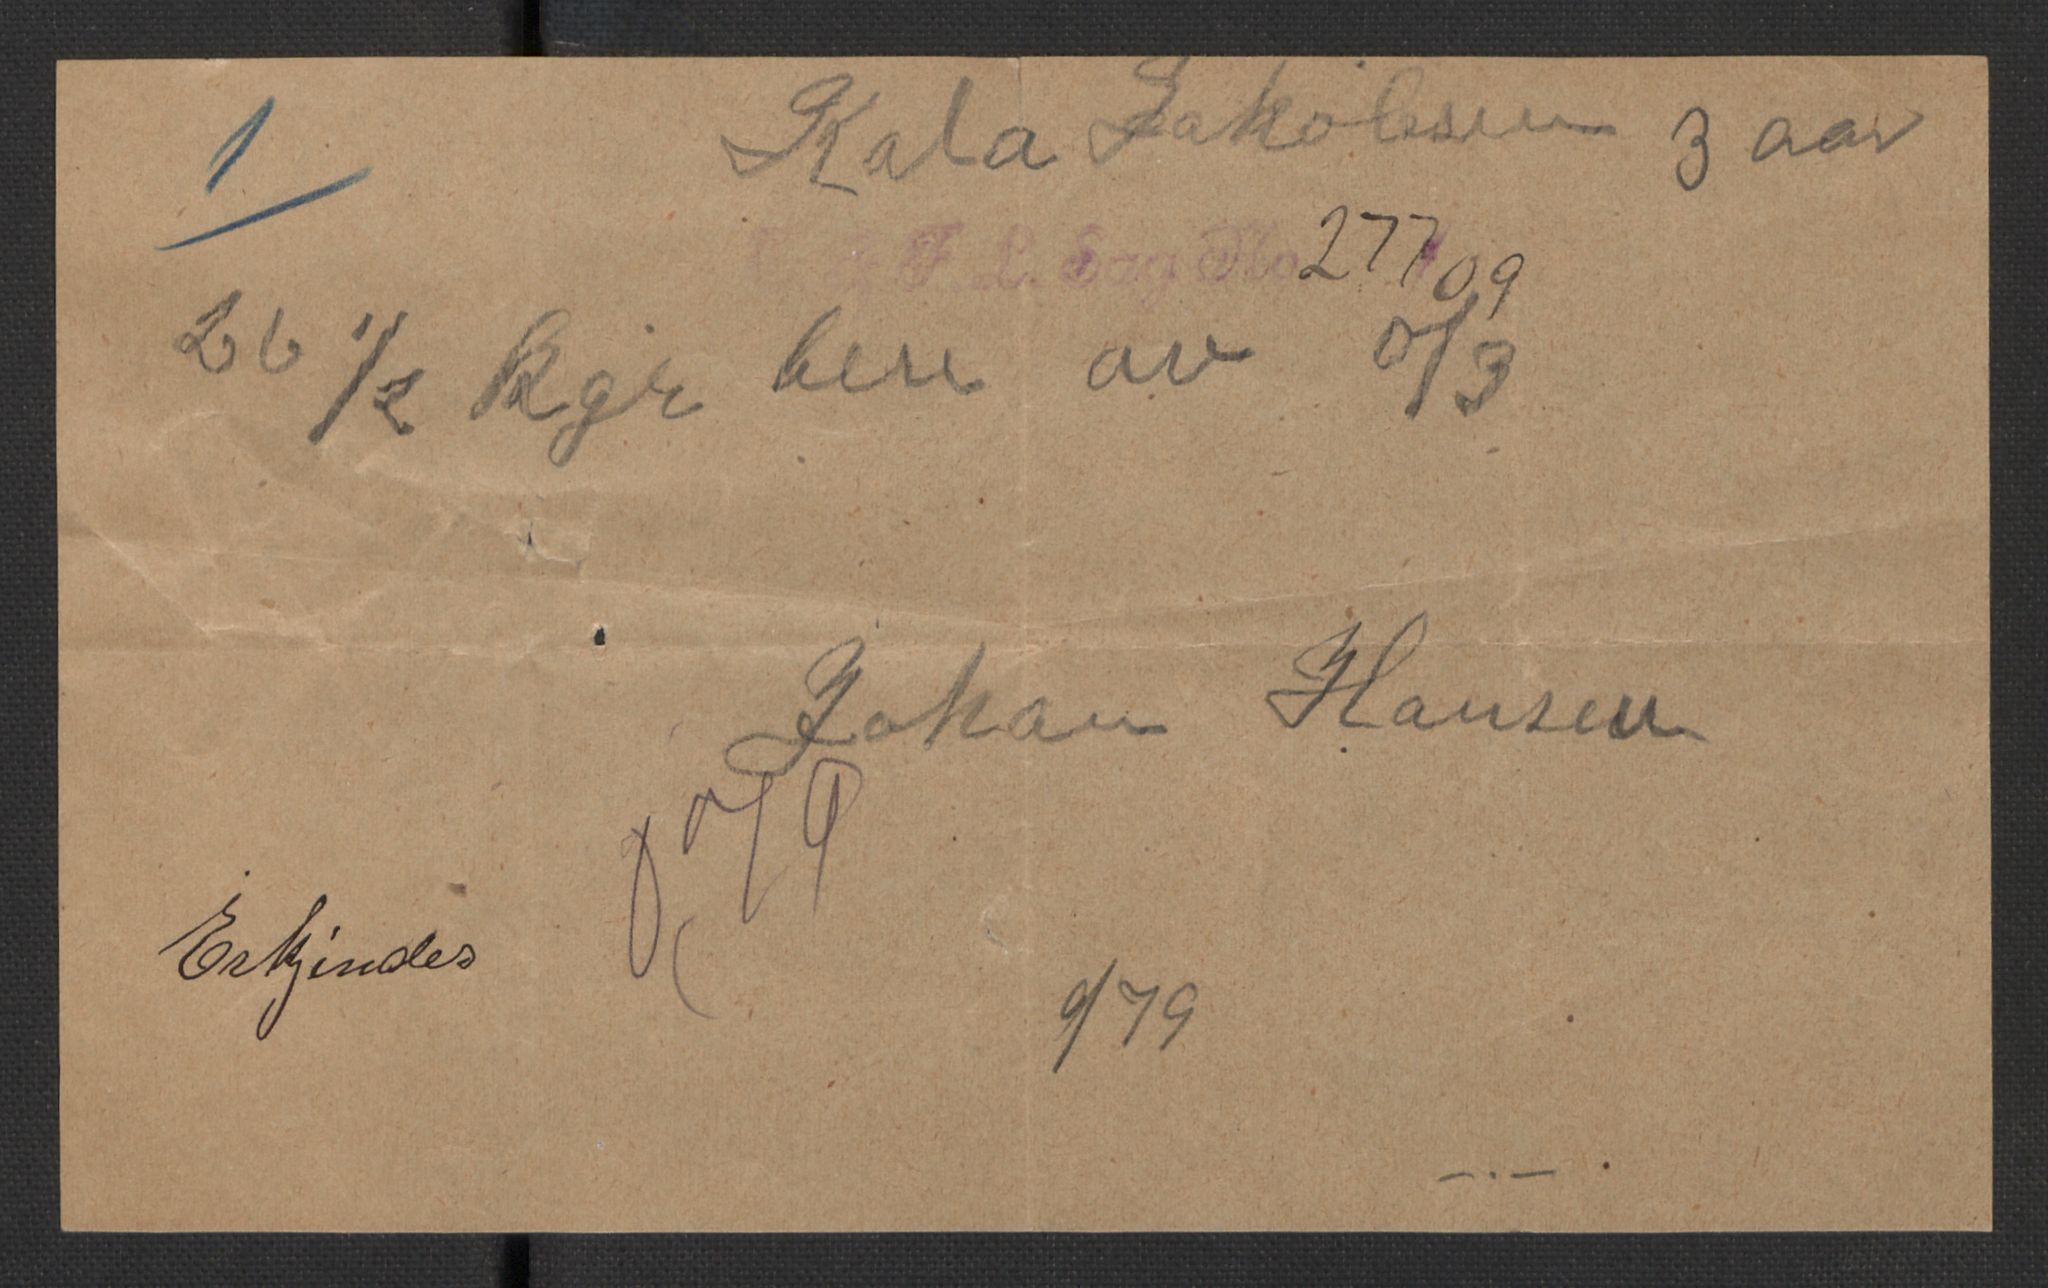 1
Kala Jakobsen 3 aar
F. L. Sag No 277/09
26 1/2 Kgr bere av 0/3
Johan Hansen
Erkjindes
9/79